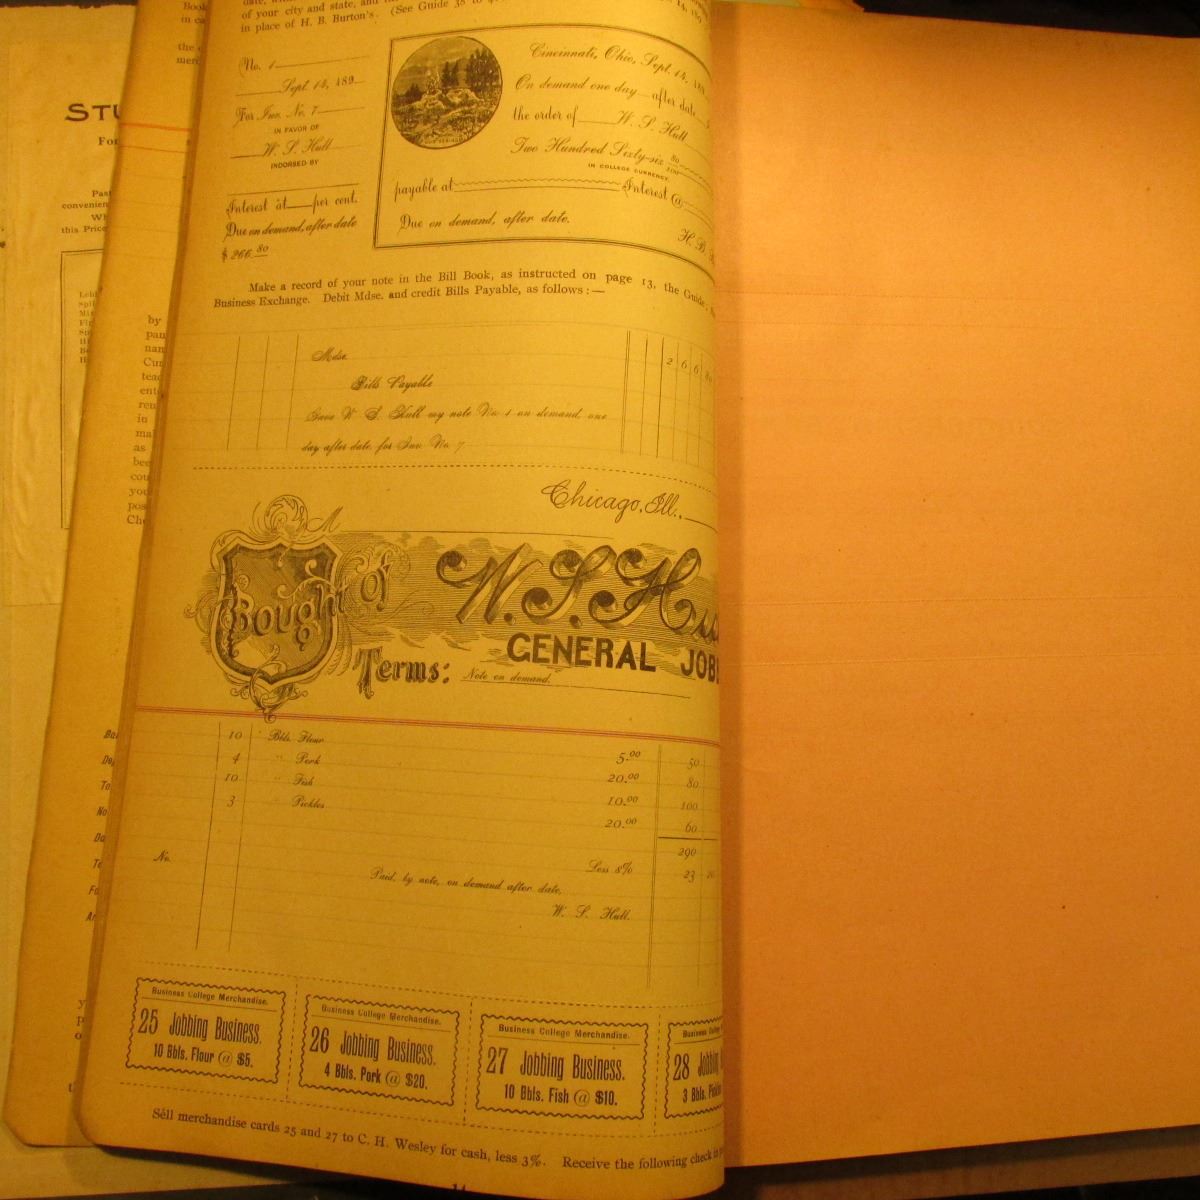 of your city and state, and
in place of H. B. Burton's. (See Guide 38 to
No. 1
Sept. 14, 189
For Inv. No. 7
IN FAVOR OF
W. S. Hull
INDORSED BY
Interest at per cent.
Due on demand, after date
$ 266.80
Cincinnati, Ohio, Sept. 14, 189
On demand one day after date
the order of W. S. Hull
Two Hundred Sixty-six 80/100
IN COLLEGE CURRENCY.
payable at Interest @
Due on demand, after date.
H. B.
Make a record of your note in the Bill Book, as instructed on page 13, the Guide,
Business Exchange. Debit Mdse. and credit Bills Payable, as follows:—
Mdse. 2 6 6 80
Bills Payable
Gave W. S. Hull my note No. 1 on demand, one
day after date, for Inv. No. 7
Chicago, Ill.,
M
Bought of W. S. Hu
GENERAL JOB
Terms: Note on demand.
10 Bbls. Flour 5.00 50
4 " Pork 20.00 80
10 " Fish 10.00 100
3 " Pickles 20.00 60
290
No. Less 8% 23 20
Paid, by note, on demand after date,
W. S. Hull.
Business College Merchandise.
25 Jobbing Business.
10 Bbls. Flour @ $5.
Business College Merchandise.
26 Jobbing Business.
4 Bbls. Pork @ $20.
Business College Merchandise.
27 Jobbing Business.
10 Bbls. Fish @ $10.
Business
28 Jobbing
3 Bbls. Pickles
Sell merchandise cards 25 and 27 to C. H. Wesley for cash, less 3%. Receive the following check in
14
STU
For
Past
convenien
Wh
this Price
Book
in ca
the
mer
by
pan
nam
Cur
teac
ent
ren
in
ma
as
bee
cou
you
pos
Che